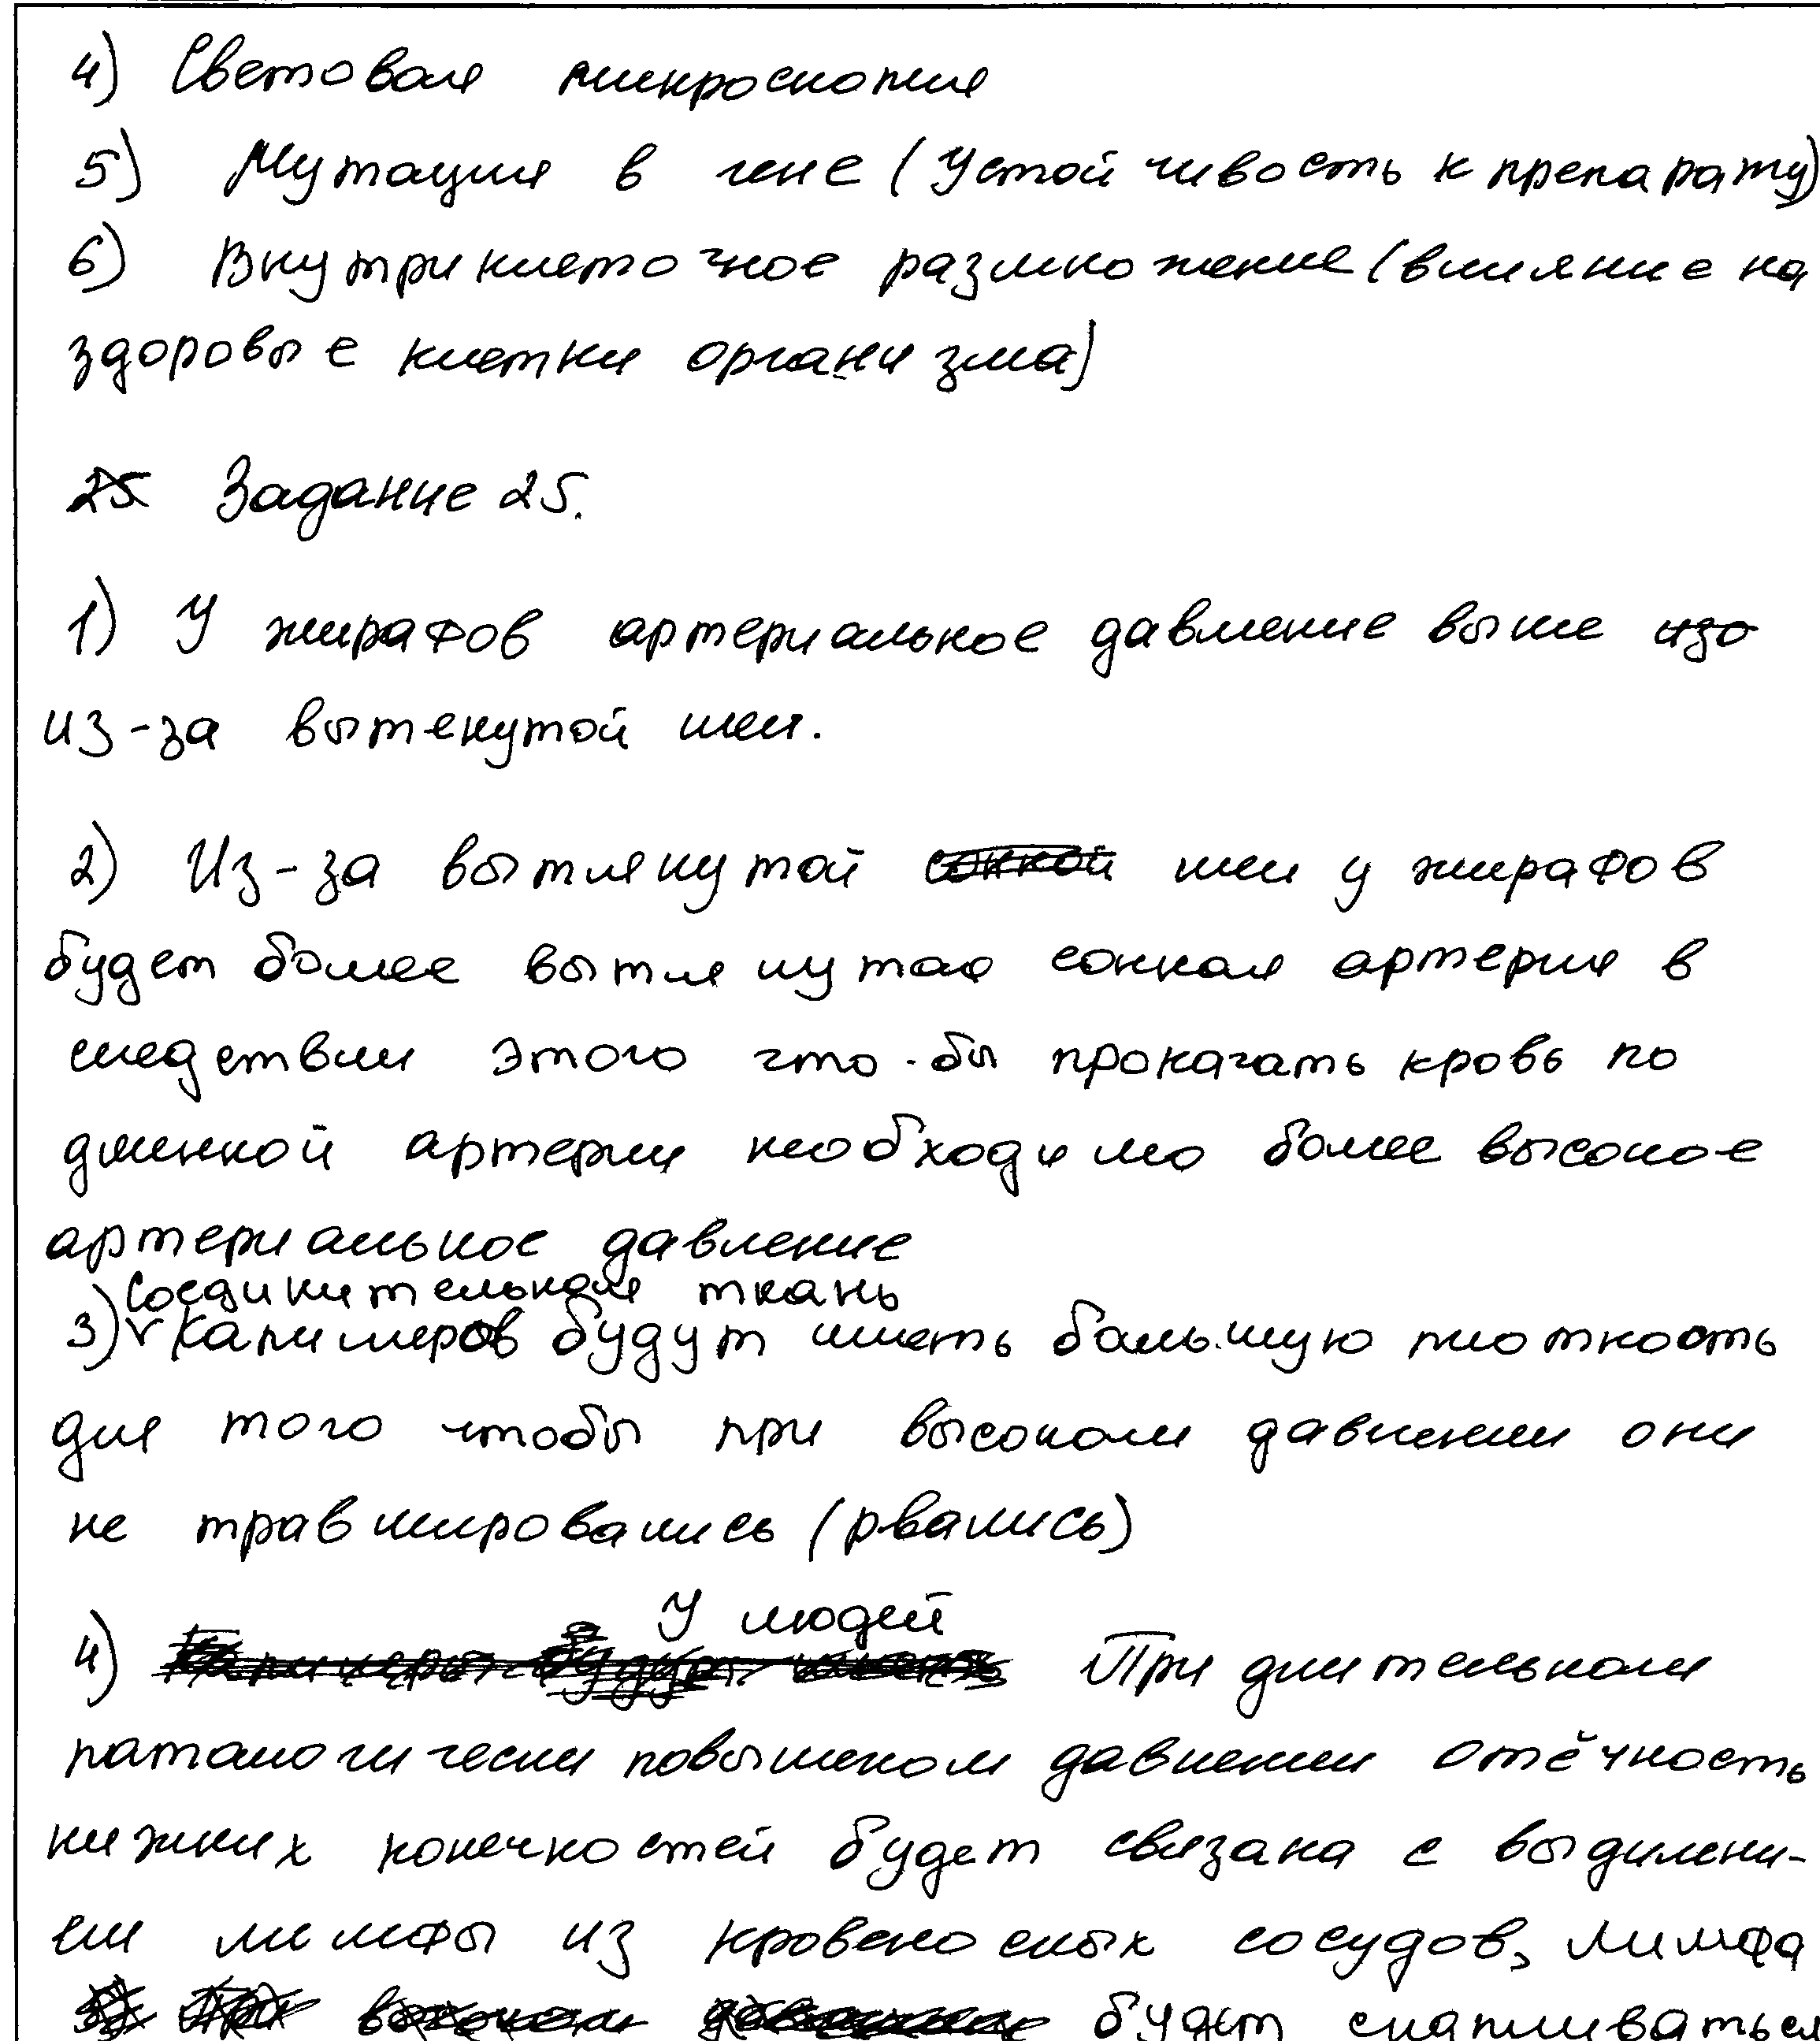 4) Световая микроскопия
5) Мутация в гене (Устойчивость к препарату)
6) Внутриклеточное размножение (влияние на
здоровые клетки организма)
25 Задание 25.
1) У жирафов артериальное давление выше изо
из-за вытенутой шеи.
2) Из-за вытлянутой сонной шеи у жирафов
будет более вытлянутая сонная артерия в
следствии этого что-бы прокачать кровь по
длинной артерии необходимо более высокое
артериальное давление
Соединительная ткань
3) Капилляров будут иметь большую плотность
для того чтобы при высоком давлении они
не травмировались (рвались)
У людей
4) При длительном
патологически повышеном давлении отёчность
нижних конечностей будет связана с выдилени-
ем лимфы из кровеносных сосудов, лимфа
будет скапливаться